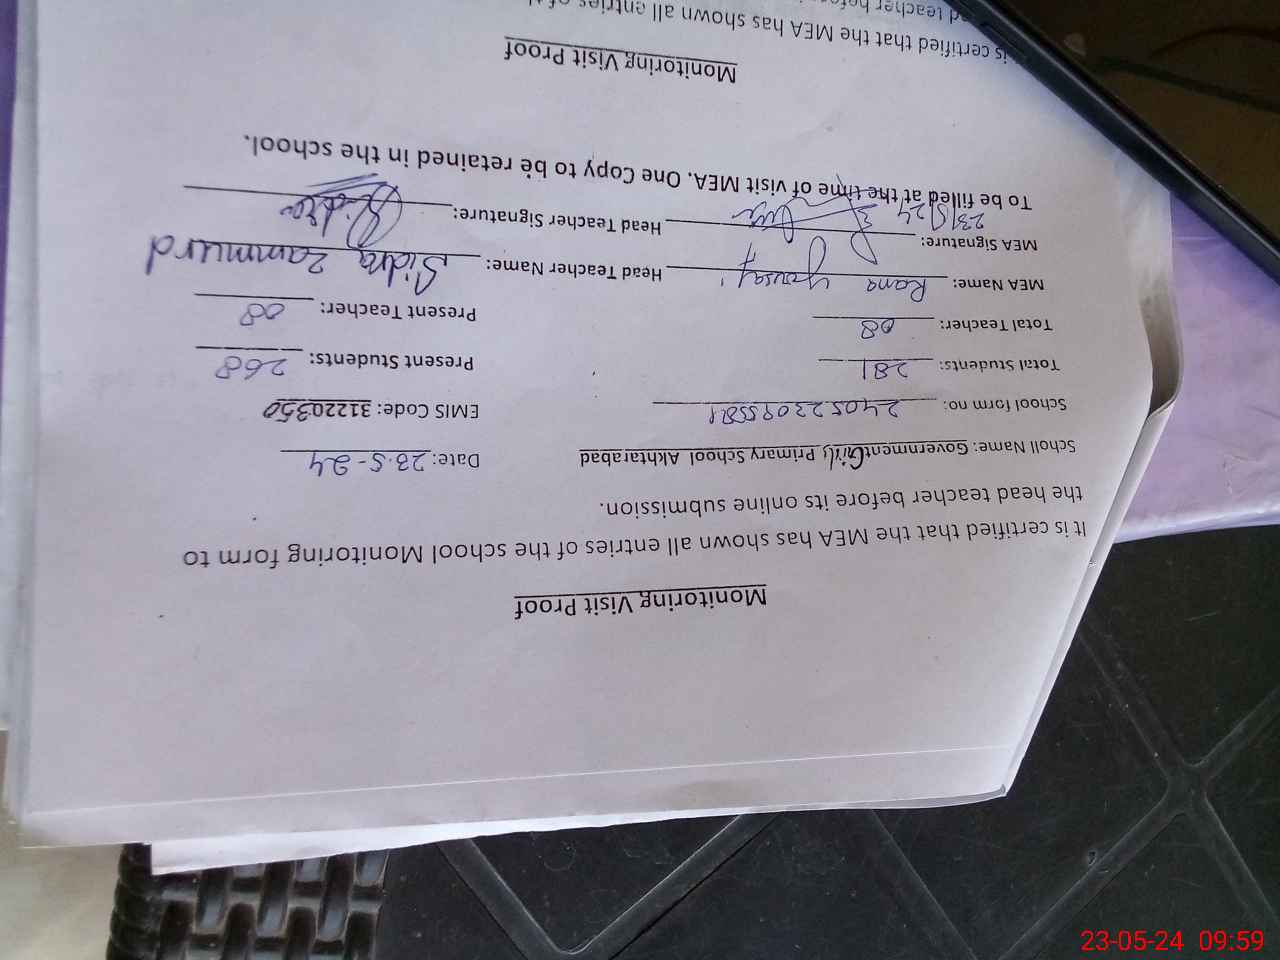 Monitoring Visit Proof
It is certified that the MEA has shown all entries of the school Monitoring form to
the head teacher before its online submission.
Scholl Name: Government Girls Primary School Akhtarabad Date: 23.5-24
School form no: EMIS Code: 31220350
Total Students: 281 Present Students: 268
Total Teacher: 08 Present Teacher: 08
MEA Name: Rana Yousaf Head Teacher Name: Sidra Zammurd
MEA Signature: Head Teacher Signature: Sidra
23/5/24
To be filled at the time of visit MEA. One Copy to be retained in the school.
Monitoring Visit Proof
is certified that the MEA has shown all entries of
teacher
23-05-24 09:59